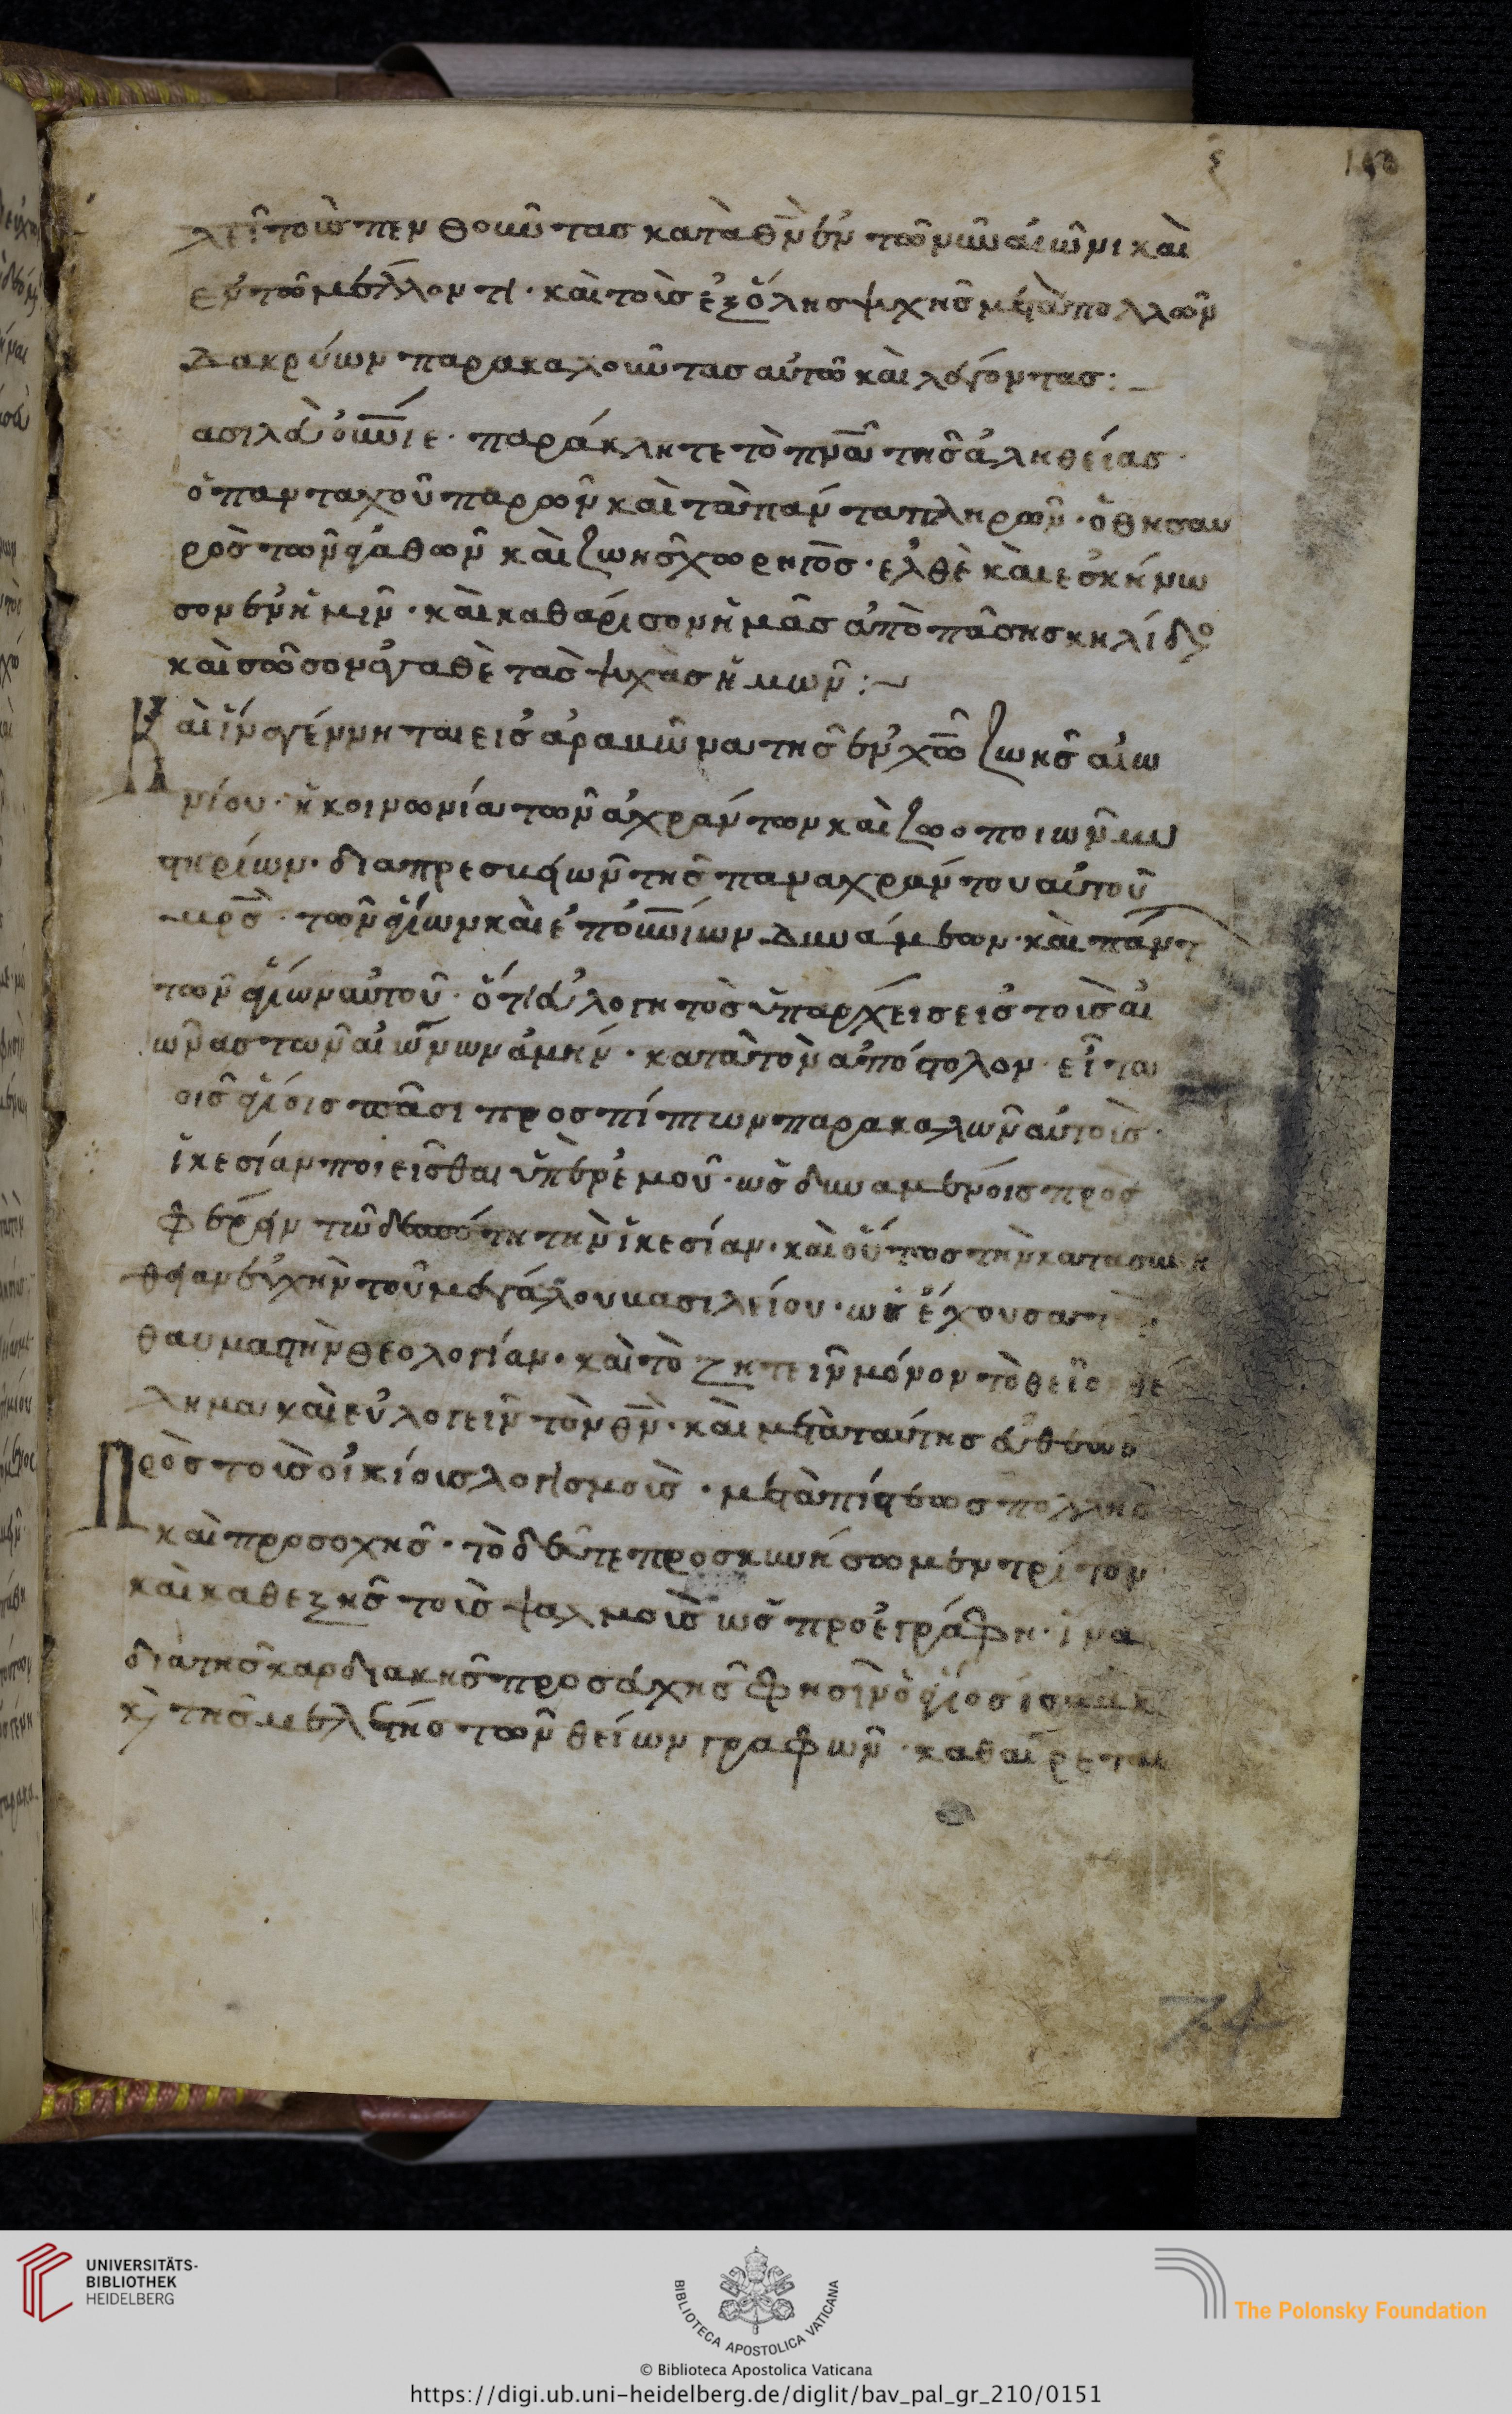 λεῖ τοὺς πενθοῦντας κατὰ θν̅ ἐν τῶ νῦν αἰῶνι καὶ
ἐν τῶ μέλλοντι· καὶ τοὺς ἐξ ὅλης ψυχῆς μετὰ πολλῶν
δακρύων παρακαλοῦντας αὐτῶ καὶ λέγοντας:
ασιλεῦ οὐνιε· παράκλητε τὸ πνα̅ τῆς ἀληθείας·
ὁ πανταχοῦ παρὼν καὶ τὰ πάντα πληρῶν· ὁ θησαυ
ρὸς τῶν ἀγαθῶν καὶ ζωῆς χωρηγὸς· ἐλθὲ καὶ ἐσκήνω
σον ἐν ἡμῖν· καὶ καθάρισον ἡμᾶς ἀπὸ πάσης κηλίδο
καὶ σῶσον ἀγαθὲ τὰς ψυχὰς ἡμῶν:
Καὶ ἵνα γέννηται εἰς ἀραβῶνα τῆς ἐν χω̅ ζωῆς αἰω
νίου· ἡ κοινωνία τῶν ἀχράντων καὶ ζωοποιῶν μυ
στηρίων· διὰ πρεσβειῶν τῆς παναχράντου αὐτοῦ
μρς̅· τῶν ἁγίων καὶ ἐπουνίων δυνάμεων· καὶ πάντ
τῶν ἁγίων αὐτοῦ· ὅτι εὐλογητὸς ὑπάρχεις εἰς τοὺς αἰ
ῶνας τῶν αἰώνων ἀμήν· κατὰ τὸν ἀπόστολον· εἶτα
οις ἁγίοις πᾶσι προσπίπτων παρακαλῶν αὐτοὺς·
ἱκεσίαν ποιεῖσθαι ὑπὲρ ἐμοῦ· ὡς δυναμένοις προσ
φέρειν τῶ δεσπότη τὴν ἱκεσίαν· καὶ οὕτως τὴν κατὰ συνή
θειαν εὐχὴν τοῦ μεγάλου βασιλείου· ὡς ἔχουσα
θαυμαστὴν θεολογίαν· καὶ τὸ ζητεῖν μόνον τὸ θεῖον θέ
λημα καὶ εὐλογεῖν τὸν θν̅· καὶ μετὰ ταύτης εὐθέως
Πρὸς τοὺς οἰκίους λογισμοὺς· μετὰ πίστεως πολλῆς
καὶ προσοχῆς· τὸ δεῦτε προσκυνήσωμεν τρίτον
καὶ καθεξῆς τοὺς ψαλμοὺς ὡς προεγράφη· ἵνα
διὰ τῆς καρδιακῆς προσευχῆς φησὶν ὁ ἅγιος ἰσαὰκ
κ(αὶ) τῆς μελέτης τῶν θείων γραφῶν· καθαίρεται
74
UNIVERSITÄTS-
BIBLIOTHEK
HEIDELBERG
BIBLIOTECA APOSTOLICA VATICANA
The Polonsky Foundation
© Biblioteca Apostolica Vaticana
https://digi.ub.uni-heidelberg.de/diglit/bav_pal_gr_210/0151